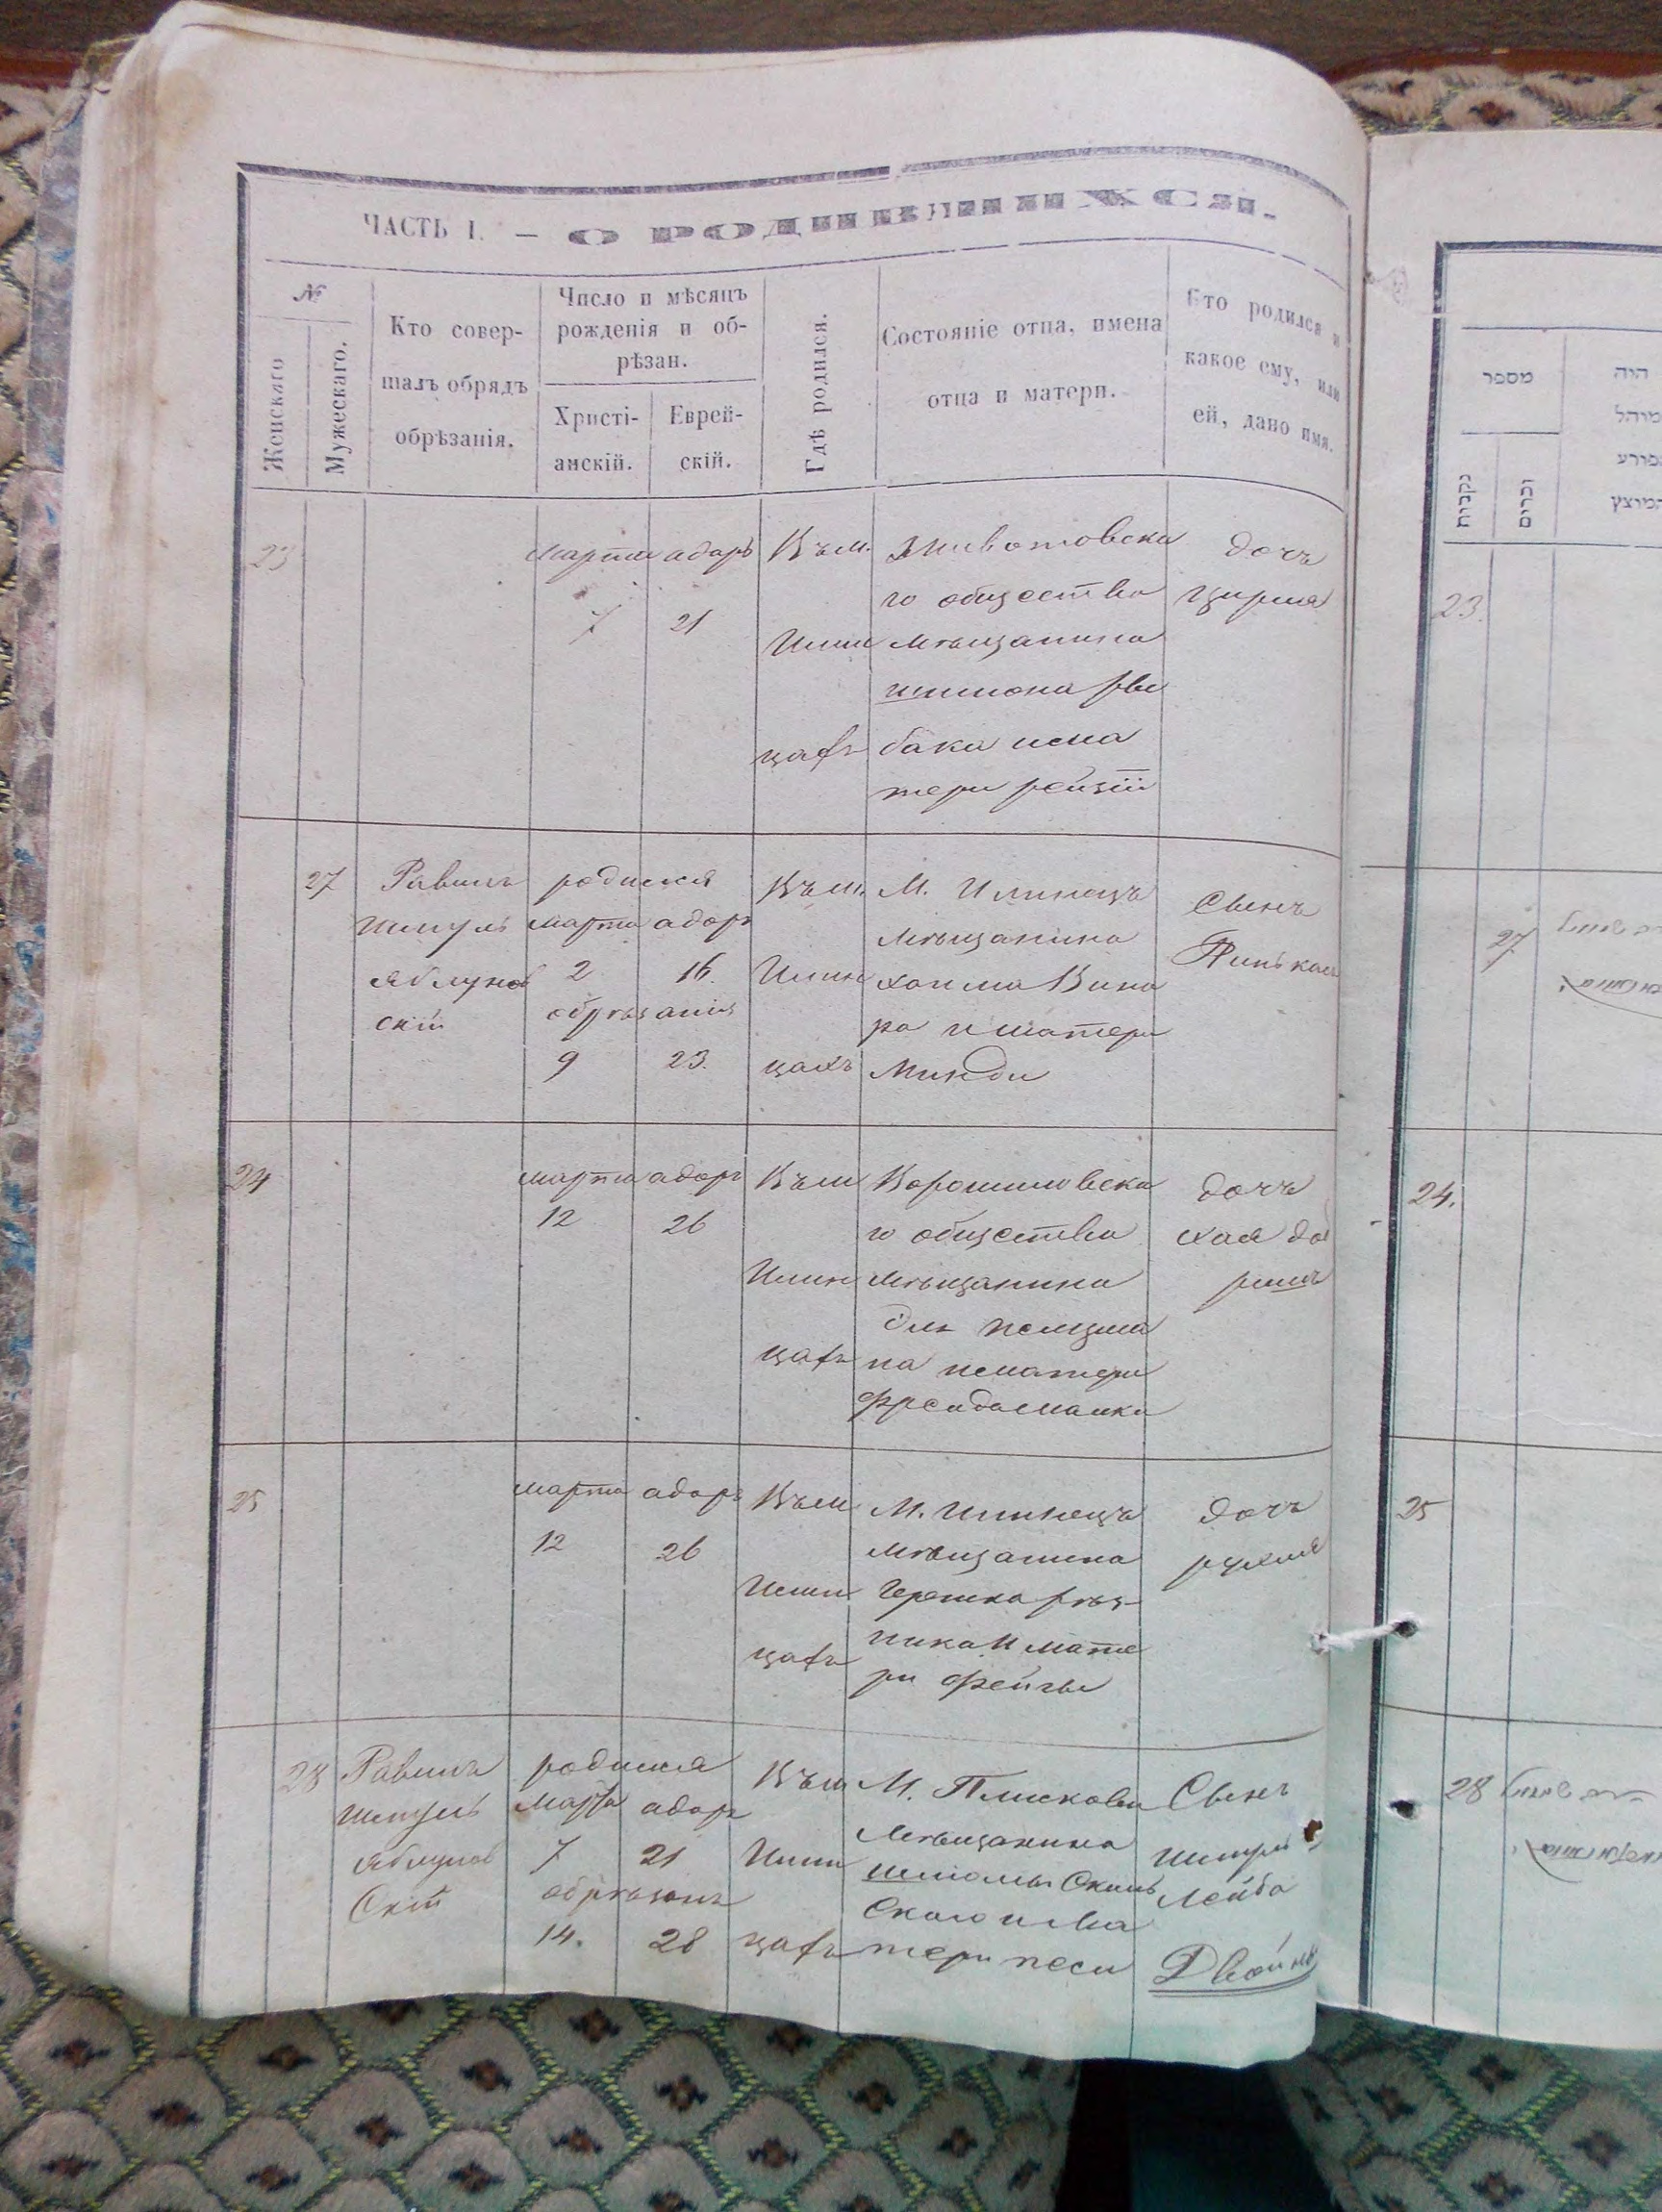 ЧАСТЬ I. — О РОДИВШИХСЯ.
№
Женскаго
Мужескаго.
Кто совер-
шалъ обрядъ
обрѣзанія.
Число и мѣсяцъ
рожденія и об-
рѣзан.
Христі-
анскій.
Еврей-
скій.
Гдѣ родился.
Состояніе отца, имена
отца и матери.
Кто родился и
какое ему, или
ей, дано имя.
23
марта адаръ
7 21
Въ м.
Илин
цахъ
Животовска
го общества
мѣщанина
шимона
бака и ма
тери рейзіи
дочь
Цирля
27
Равинъ
Шмуль
Яблунов
скій
родился
марта адаръ
2 16.
обрѣзанія
9 23.
Въ м.
Илин
цахъ
М. Илинецъ
мѣщанина
хаима Вина
ра и матери
Минди
Сынъ
Пинькас
24
марта адаръ
12 26
Въ м
Илин
цахъ
Ворошиловска
го общества
мѣщанина
на и матери
фрейда малки
дочь
хая до
25
марта адаръ
12 26
Въ м
Илин
цахъ
М. Илинецъ
мѣщанина
Гершка рѣз-
ника и мате
ри фейги
дочь
рухля
28
Равинъ
Шмуль
Яблунов
Скій
родился
марта адаръ
7 21
обрѣзанъ
14. 28
Въ м
Илин
цахъ
М. Плисковы
мѣщанина
шломы
Скаго и ма
тери песи
Сынъ
Шмуль
Лейба
מספר
נקבות
זכרים
היה
מוהל
פורע
המוצץ
23.
27
24.
25
28